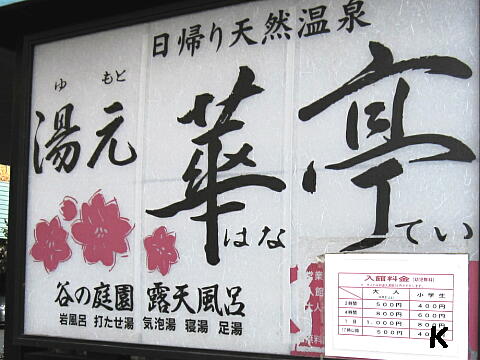 日帰り天然温泉
ゆ もと
湯元 華亭
はな てい
谷の庭園 露天風呂
岩風呂 打たせ湯 気泡湯 寝湯 足湯
入館料金
大人 小学生
2時間 500円 400円
4時間 800円 600円
1日 1,000円 800円
500円
K